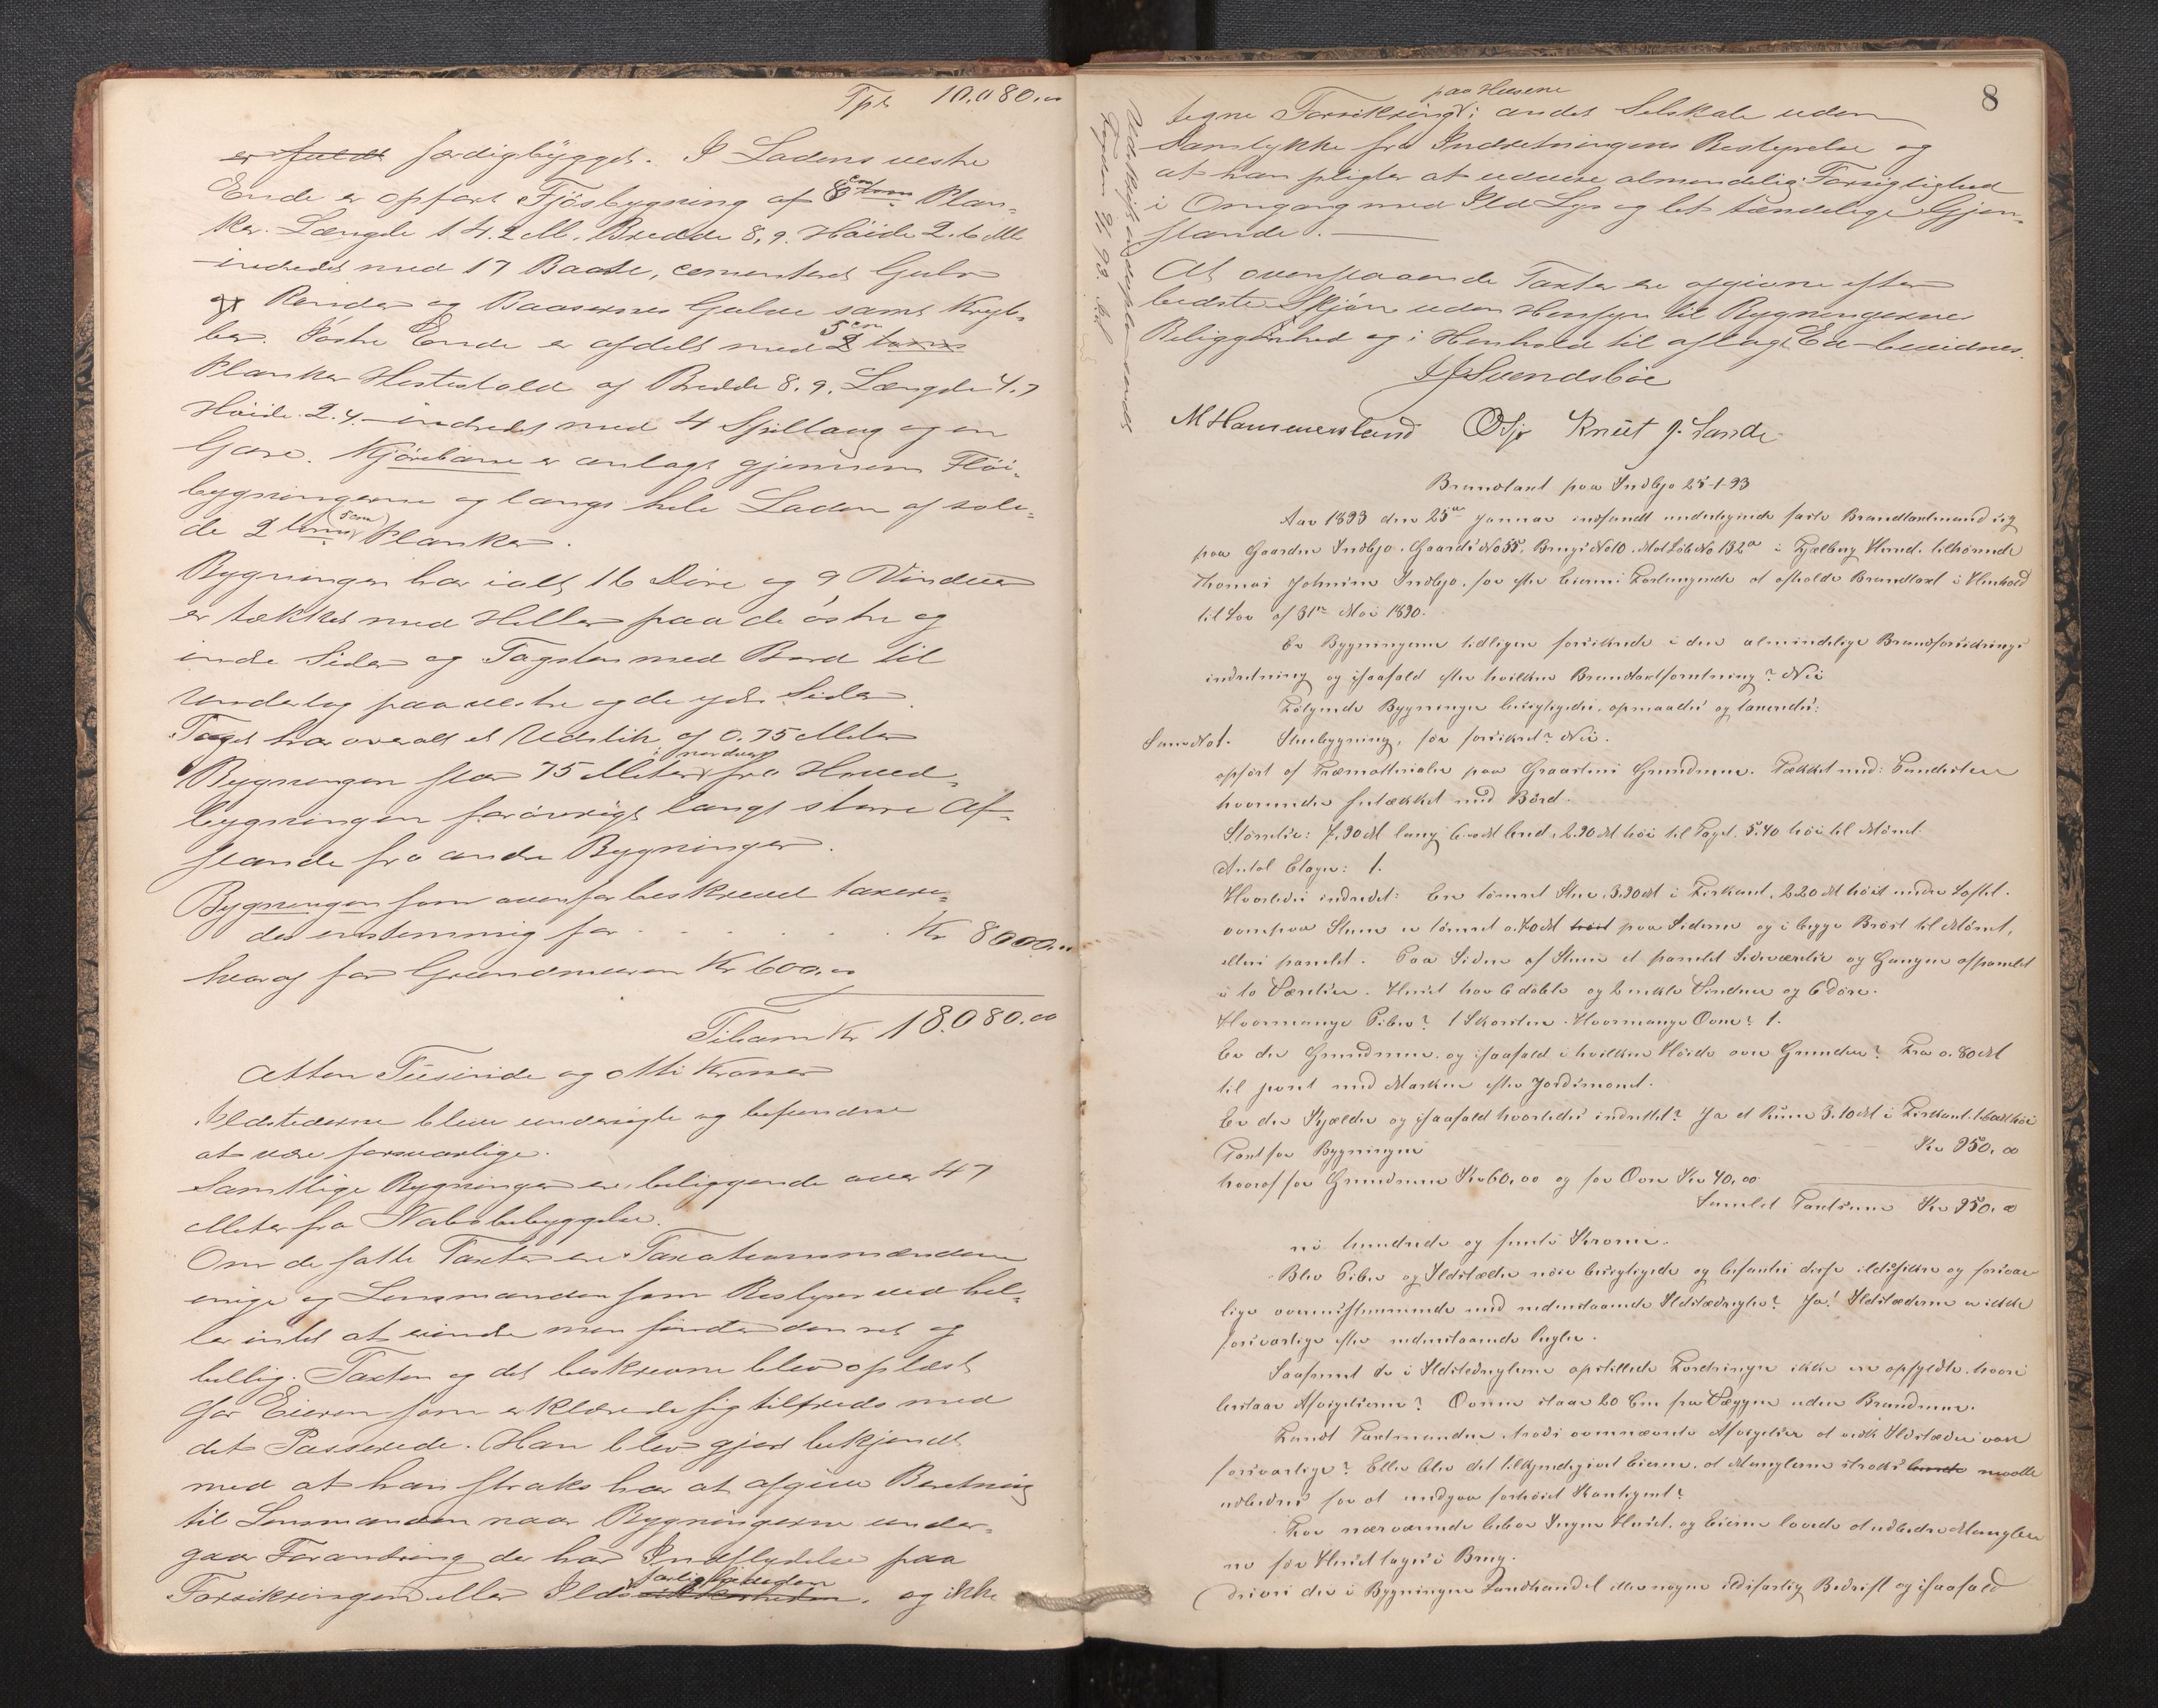 Tpt 10,080.00
er fuldt færdigbygget. I Ladens vestre
Ende er opført Fjøsbygning af 8 cm toms Plan-
ker. Længde 14.2 M. Bredde 8,9. Høide 2.6 M
indredet med 17 Baase, cementeret Gulv
og Render og Baasernes Gulve samt Kryb-
ber. I østre Ende er afdelt med 5 cm 2 toms
Planker Hestestald af Bredde 8.9. Længde 4.7
Høide 2.4. indredet med 4 Spiltaug og en
Gare. Kjørebane er anlagt gjennem Fløi-
bygningerne og langs hele Laden af soli-
de 2 toms (5 cm) Planker.
Bygningen har ialt 16 Døre og 9 Vinduer
er tækket med Heller paa de østre og
indre Sider og Tagsten med Bord til
Underlag paa vestre og de ydre Sider.
Taget har overalt et Udstik af 0.75 Meter
Bygningen staar 75 Meter i nordvest fra Hoved-
bygningen forøvrigt langt større Af-
stande fra andre Bygninger.
Bygningen som ovenfor beskrevet taxere-
des enstemmig for . . . . . Kr 8000.00
hvoraf for Grundmuren Kr 600.00
Tilsam Kr 18.080.00
Atten Tusinde og otti Kroner
Ildstederne bleve undersøgte og befundne
at være forsvarlige.
Samtlige Bygninger er beliggende over 47
Meter fra Nabobebyggelse.
Om de satte Taxter ere Taxationsmændene
enige og Lensmanden som Bestyrer ved hel-
ler intet at erindre men finder den ret og
billig. Taxten og det beskrevne blev oplæst
for Eieren som erklærede sig tilfreds med
det Passerede. Han blev gjort bekjendt
med at han straks har at afgive Beretning
til Lensmanden naar Bygningerne under-
gaar Forandring der har Indflydelse paa
Forsikringen eller Ildsfarligheden sikkerheden. og ikke
8
tegne Forsikring paa Husene i andet Selskab uden
Samtykke fra Indretningens Bestyrelse og
at han pligter at udvise almindelig Forsigtighed
i Omgang med Ild Lys og let tændelige Gjen-
stande.
At ovenstaaende Taxter ere afgivne efter
bedste Skjøn uden Hensyn til Bygningernes
Beliggenhed og i Henhold til aflagt Ed bevidnes.
J J Svendsbøe
M Hammersland Knut J. Sande
Branntaxt paa Indbjo 25-1-93
Aar 1893 den 25de Januar indfandt undertegnede faste Brandtaxtmænd sig
paa Gaarden Indbjo, Gaards No 55, Brugs No 10, Mat Løb No 132a i Fjelberg Herred, tilhørende
Thomas Johnsen Indbjo, for efter Eierens Forlangende at afholde Brandtaxt i Henhold
til Lov af 31te Mai 1890.
Er Bygningerne tidligere forsikrede i den almindelige Brandforsikrings
indretning og isaafald efter hvilken Brandtaxtforretning? Nei
Følgende Bygninger besigtigedes, opmaaltes og taxeredes:
Litra No 1. Stuebygning, før forsikret? Nei.
opført af Træmaterialer paa Graastens Grundmur. Tækket med: Tundsten
hvorunder fultækket med Bord.
Størrelse: 7.90 M lang 6.00 M bred, 2.90 M høi til Taget, 5.40 høi til Mønet.
Antal Etager: 1.
Hvorledes indredet: En tømret Stue, 3.90 M i Firkant, 2.20 M høit under Loftet.
ovenpaa Stuen er tømret 0.70 M høit paa Siderne og i begge Brøst til Mønet,
ellers panelet. Paa Siden af Stuen et panelet Sideværelse og Gangen afpanelet
i to Værelser. Huset har 6 doble og 2 enkle Vinduer og 6 Døre.
Hvormange Piber? 1 Skorsten. Hvormange Ovne? 1.
Er der Grundmur, og isaafald i hvilken Høide over Grunden? Fra 0.80 M
til jevnt med Marken efter Jordsmonet.
Er der Kjælder og isaafald hvorledes indrettet? Ja et Rum 3.10 M i Firkant, 1.60 M høi
Taxt for Bygningen Kr 950.00
hvoraf for Grundmur Kr 60,00 og for Ovn Kr 40,00
Samlet Taxtsum Kr 950.00
ni hundrede og femti Kroner.
Blev Piber og Ildstæder nøie besigtigede og befantes disse ildsikre og forsvar
lige overensstemmende med nedenstaaende Ildstedsregler? Ja! Ildstæderne er ikke
forsvarlige efter nedenstaaende Regler.
Saafremt de i Ildstedsreglerne opstillede Fordringer ikke ere opfyldte, hvori
bestaar Afvigelserne? Ovnen staar 20 Cm fra Væggen uden Brandmur.
Fandt Taxtmændene trods ovennævnte Afvigelser at vedk Ildstæder vare
forsvarlige? Eller blev det tilkjendegivet Eieren, at Manglerne straks burde maatte
udbedres for at undgaa forhøiet Kontigent?
For nærværende bebor Ingen Huset, og Eieren lovede at udbedre Mangler
ne før Huset tages i Brug.
Drives der i Bygningen Landhandel eller nogen ildsfarlig Bedrift og isaafald